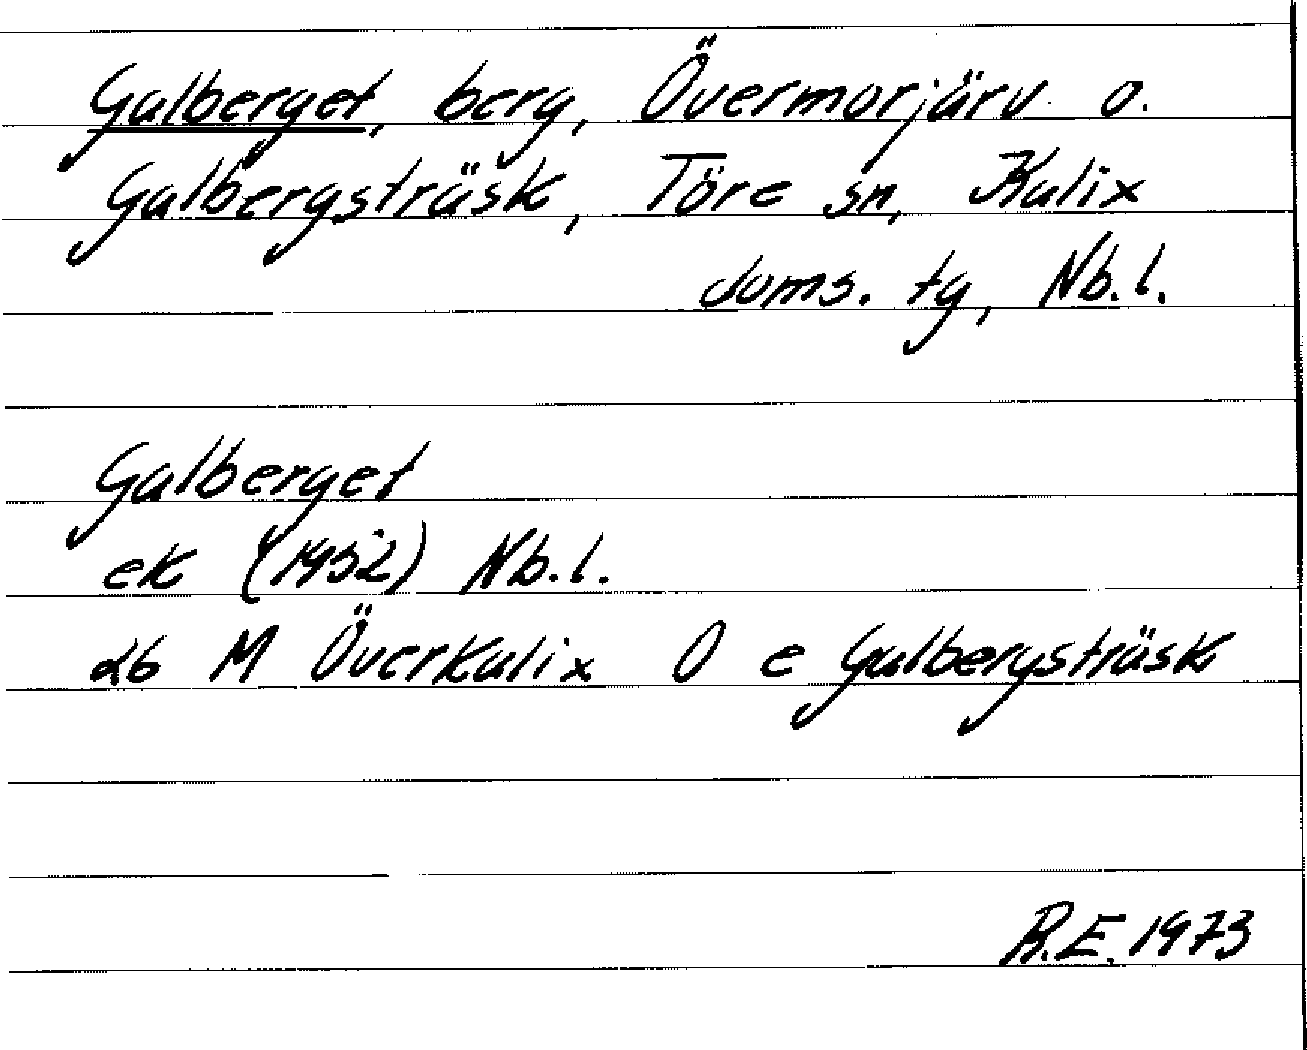 Galberget, berg, Övermorjärv o.
Galbergsträsk, Töre sn, Kalix
doms. tg, Nb.l.
Galberget
ek (1952) Nb.l.
26 M Överkalix O e Galbergsträsk
R.E. 1973